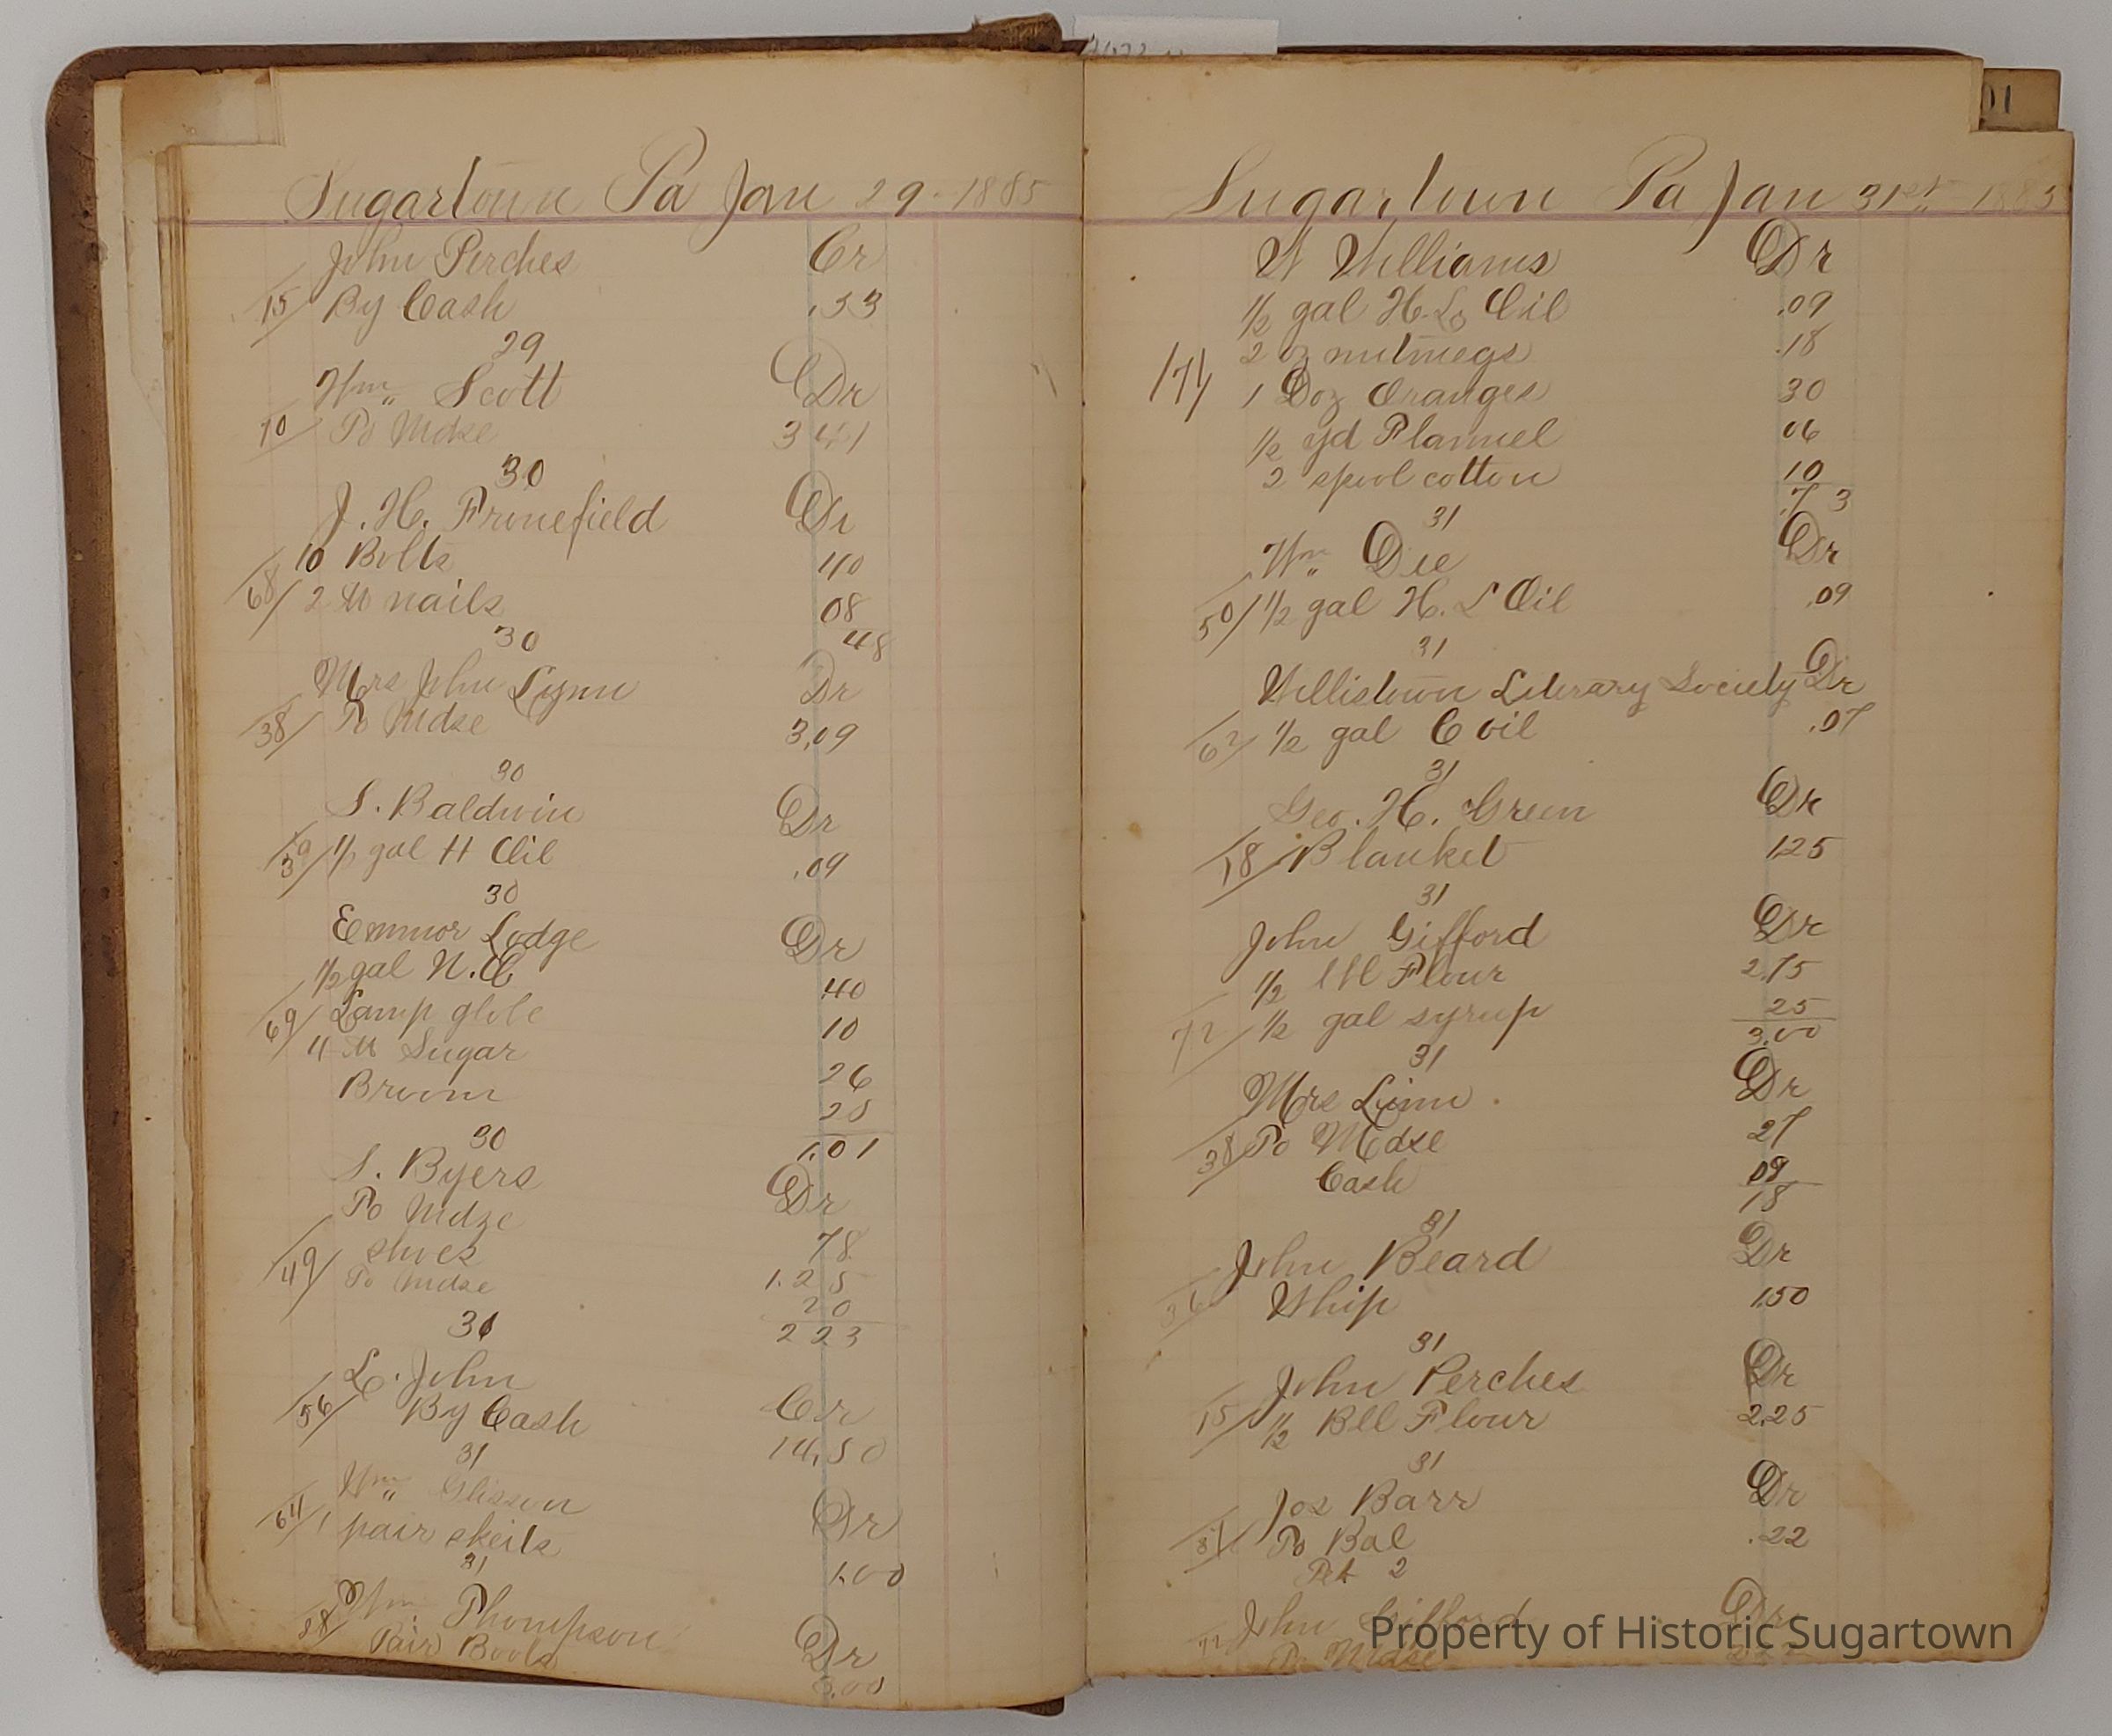 Sugartown Pa Jan 29. 1885
John Perches Cr
15/ By Cash .33
29
Wm Scott Dr
10/ To Mdse 3 41
30
J. H. Fronefield Dr
10 Bolts 40
68/ 2 lb nails 08
48
30
Mrs John Lynn Dr
38/ To Mdse 3,09
30
S. Baldwin Dr
39/ 1/2 gal H Oil .09
30
Emmor Lodge Dr
1/2 gal N.O 40
69/ Lamp globe 10
4 lb Sugar 26
Broom 25
1.01
30
S. Byers Dr
To Mdse 78
49/ shoes 1.25
To Mdse 20
2 23
31
L. John Cr
56/ By Cash 14,50
31
Wm Glisson Dr
64/ 1 pair skeits 1.00
31
Wm Thompson Dr
88/ Pair Boots 3.00
Sugartown Pa Jan 31st 1885
W Williams Dr
1/2 gal H. L. Oil .09
2 oz nutmegs .18
171/ 1 Doz Oranges 30
1/2 yd Flannel 06
2 spool cotton 10
.73
31
Wm Dee Dr
50/ 1/2 gal H. L Oil .09
31
Willistown Literary Society Dr
62/ 1/2 gal C oil .07
31
Geo. H. Green Dr
18/ Blanket 1.25
31
John Gifford Dr
1/2 bbl Flour 2.75
72/ 1/2 gal syrup 25
3.00
31
Mrs Linn Dr
38/ To Mdse 27
Cash 09
18
31
John Beard Dr
36/ Whip 1.50
31
John Perches Dr
15/ 1/2 Bll Flour 2.25
31
Jos Barr Dr
To Bal .22
2
John Gifford Dr
72/ To Mdse
01
Property of Historic Sugartown